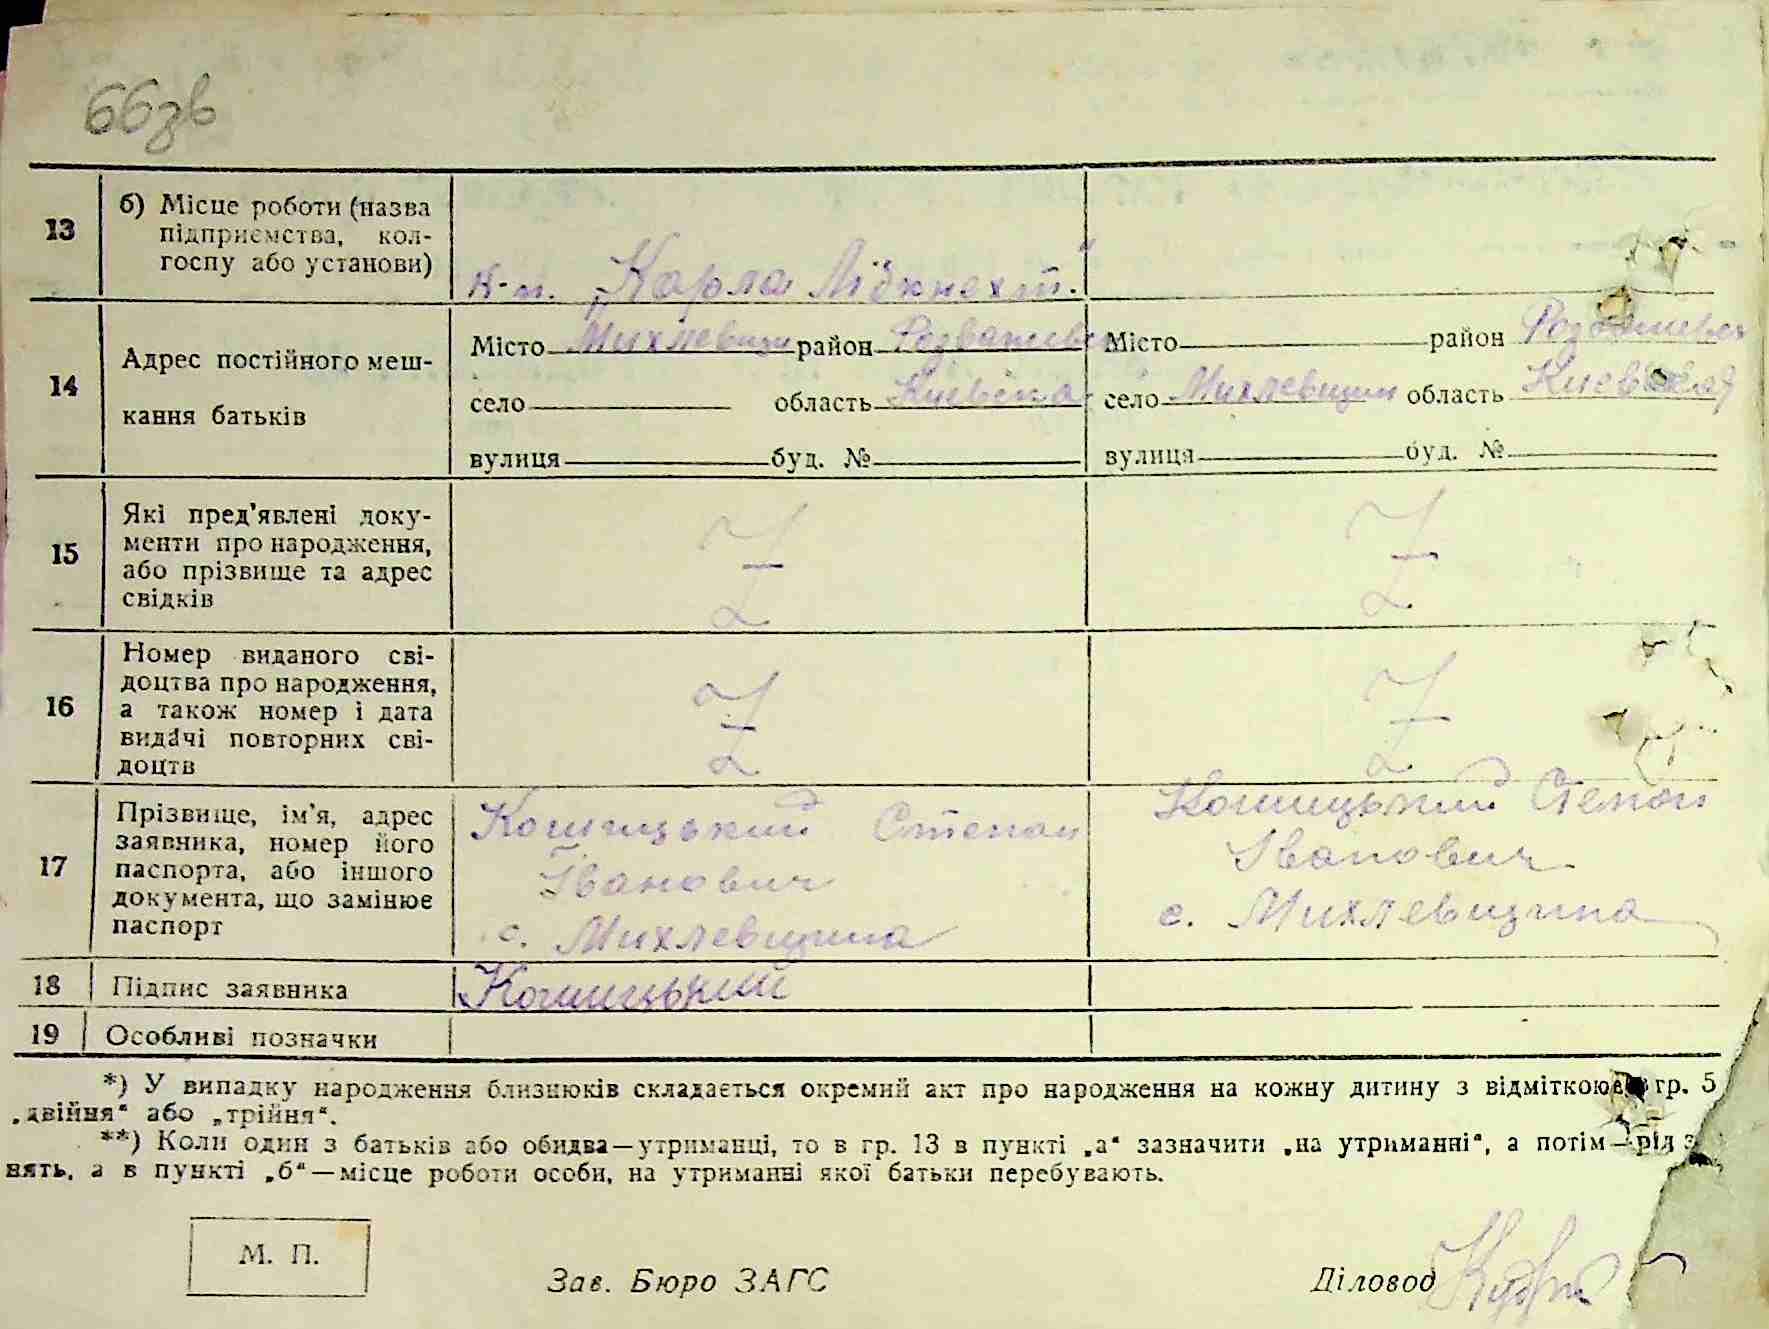 66зв
13 б) Місце роботи (назва
підприємства, кол-
госпу або установи)
к-п. „Карла Лібкнехт."
14 Адрес постійного меш-
кання батьків
Місто район Розважевс Місто район
село область Київська село Михлевщин область Киевская
вулиця буд. № вулиця буд. №
15 Які пред'явлені доку-
менти про народження,
або прізвище та адрес
свідків
16 Номер виданого сві-
доцтва про народження,
а також номер і дата
видачі повторних сві-
доцтв
17 Прізвище, ім'я, адрес
заявника, номер його
паспорта, або іншого
документа, що замінює
паспорт
Кошицький Степан
Іванович
с. Михлевщина
Кошицький Степан
Іванович
с. Михлевщина
18 Підпис заявника Кошицький
19 Особливі позначки
*) У випадку народження близнюків складається окремий акт про народження на кожну дитину з відміткою в гр. 5
„двійня" або „трійня".
**) Коли один з батьків або обидва—утриманці, то в гр. 13 в пункті „а" зазначити „на утриманні", а потім—рід з
нять, а в пункті „б"—місце роботи особи, на утриманні якої батьки перебувають.
М. П.
Зав. Бюро ЗАГС Діловод